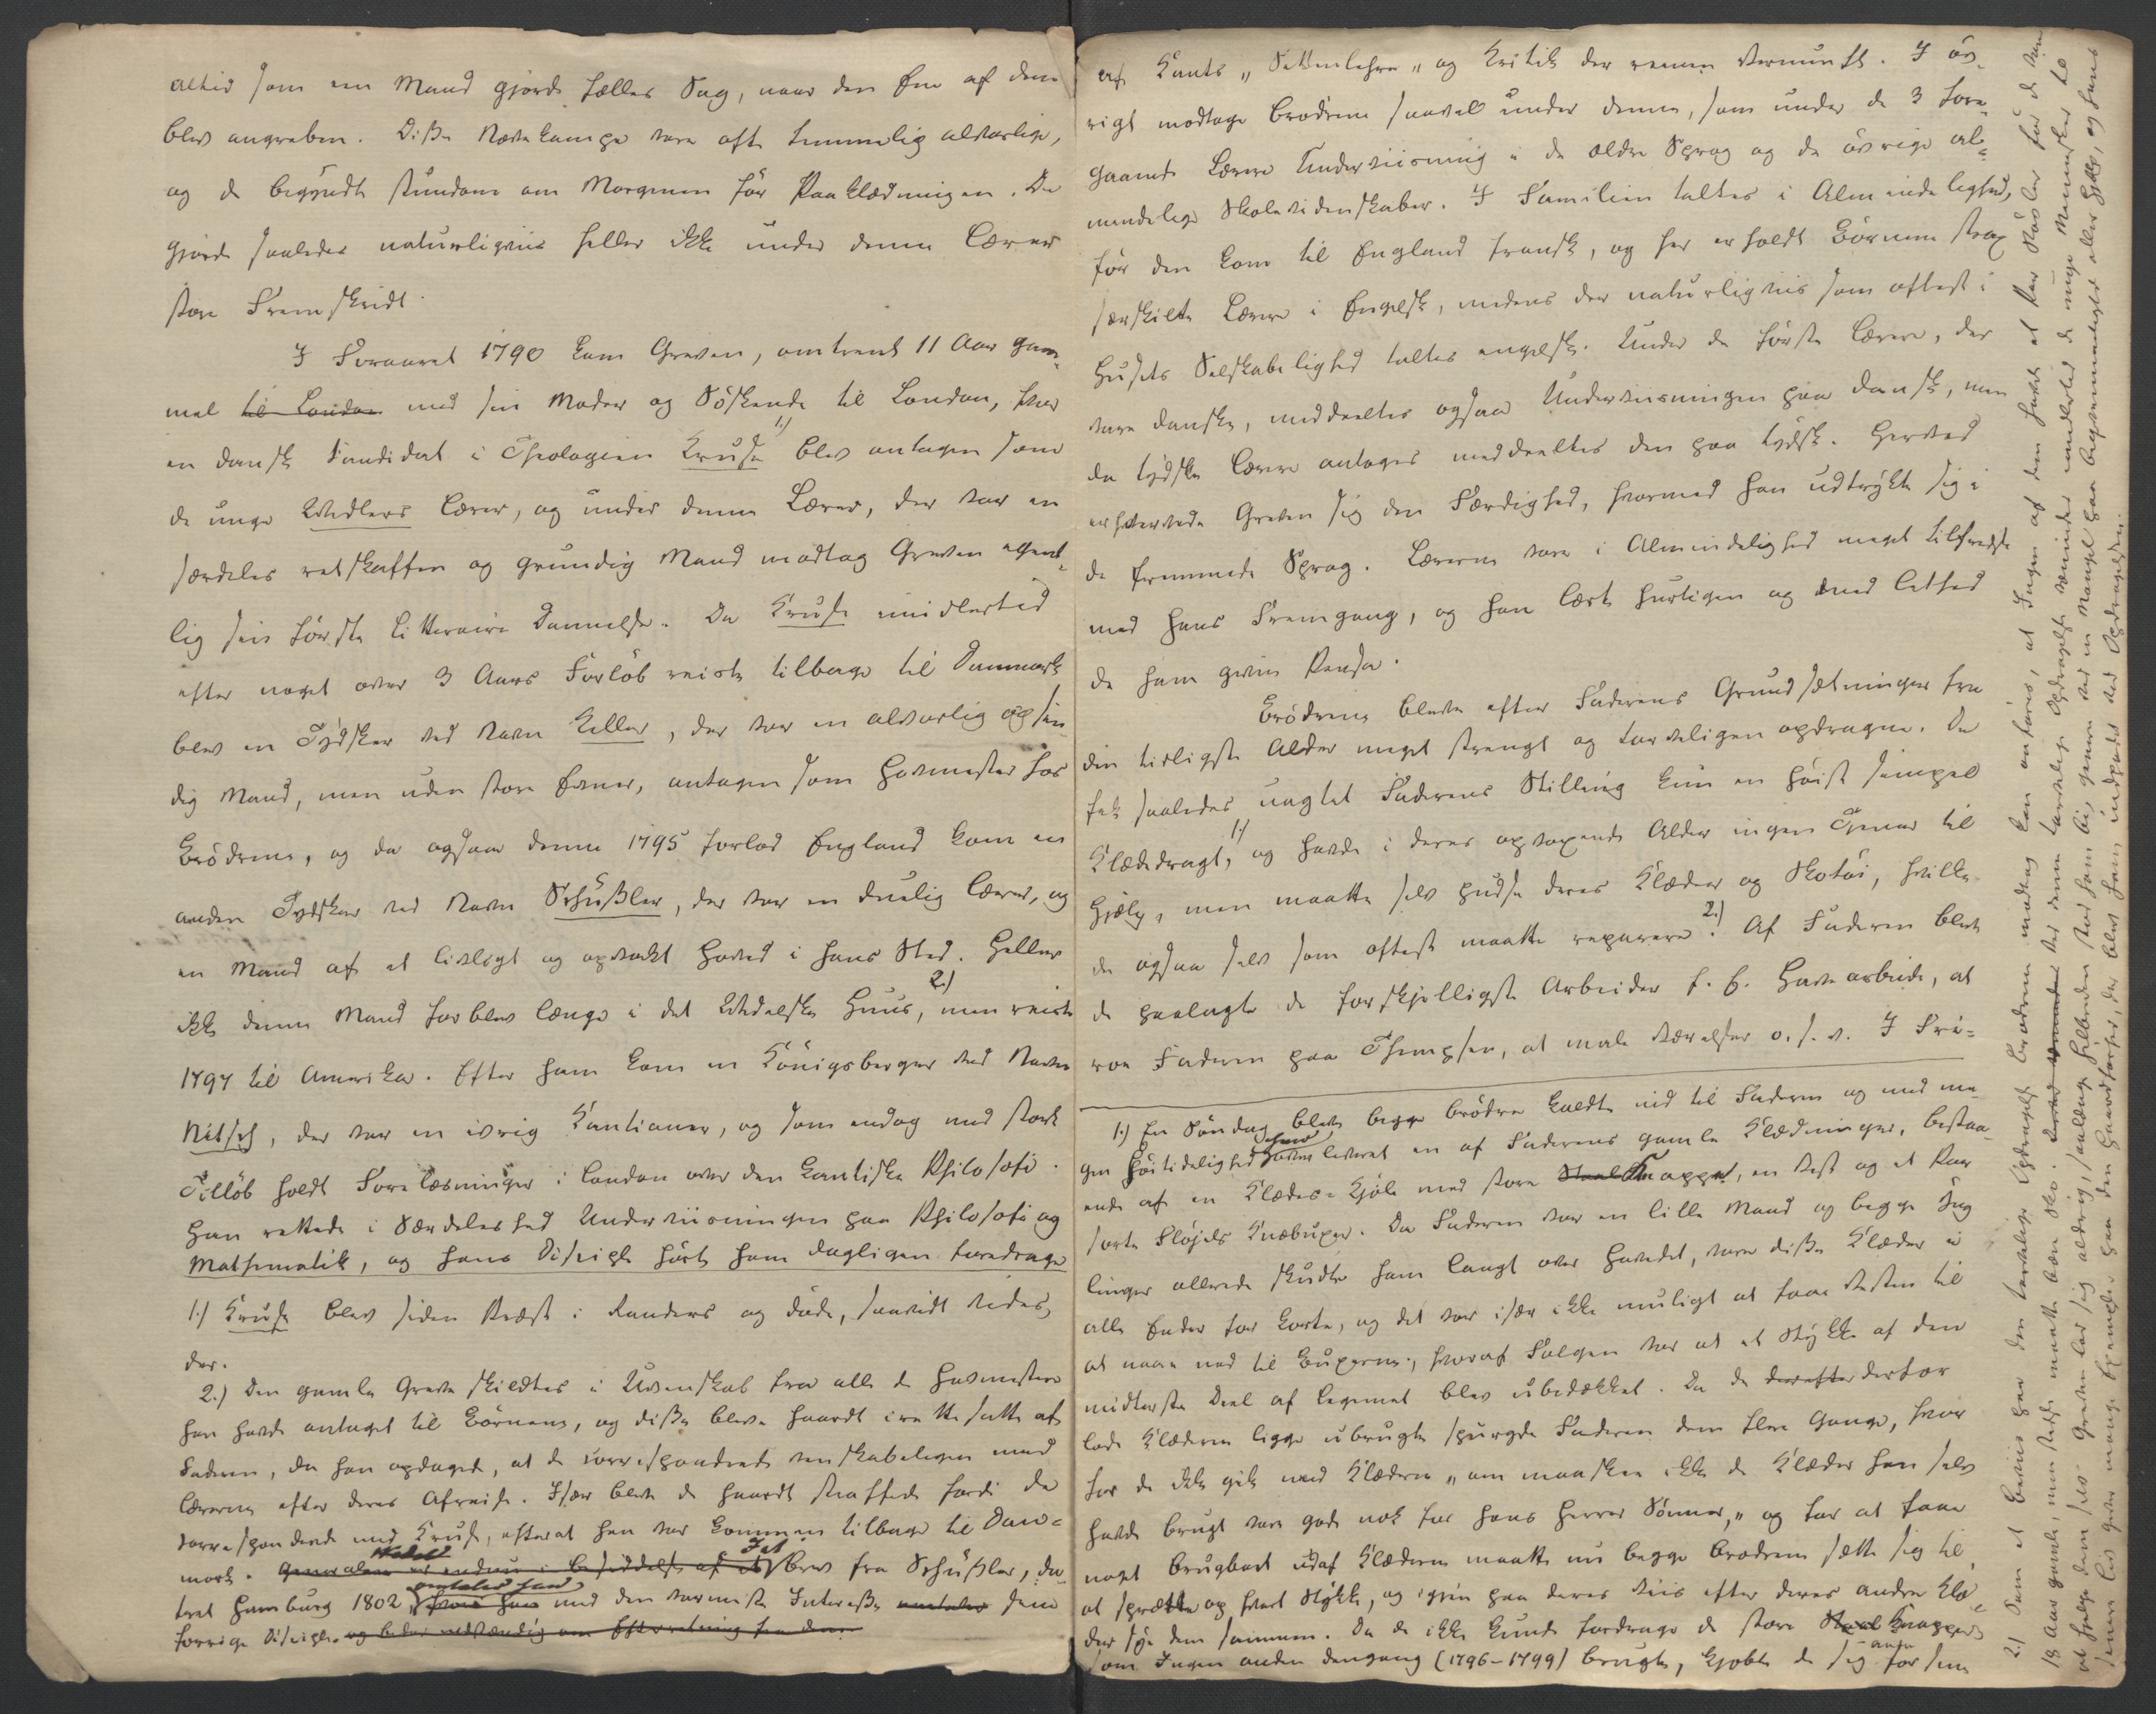 altid som een Mand gjorde fælles Sag, naar den Ene af dem
blev angreben. Disse Nævekampe vare ofte temmelig alvorlige,
og de begyndte stundom om Morgenen før Paaklædningen. De
gjorde saaledes naturligviis heller ikke under denne Lærer
store Fremskridt.
I Foraaret 1790 kom Greven, omtrent 11 Aar gam¬
mel til London med sin Moder og Södskende til London, hvor
en dansk Candidat i Theologien Kruse 1) blev antagen som
de unge Wedlers Lærer, og under denne Lærer, der var en
særdeles retskaffen og grundig Mand modtog Greven egent¬
lig sin förste litteraire Dannelse. Da Kruse imidlertid
efter noget over 3 Aars Forlöb reiste tilbage til Danmark
blev en Tydsker ved Navn Keller, der var en alvorlig og sin
dig Mand, men uden store Evner, antagen som Hovmester hos
Brödrene, og da ogsaa denne 1795 forlod England kom en
anden Tydsker ved Navn Schüßler, der var en duelig Lærer, og
en Mand af et livligt og opvakt Hoved i hans Sted. Heller
ikke denne Mand forblev længe i det Wedelske Huus, 2.) men reiste
1797 til Amerika. Efter ham kom en Königsberger ved Navn
Nitsch, der var en ivrig Kantianer, og som endog med stort
Tillöb holdt Forelæsninger i London over den Kantiske Philosofi.
Han rettede i Særdeleshed Underviisningen paa Philosofi og
Mathematik, og hans Disciple hörte ham dagligen foredrage
1.) Kruse blev siden Præst i Randers og döde, saavidt vides,
der.
2.) Den gamle Greve skiltes i Uvenskab fra alle de Hovmestere
han havde antaget til Börnene, og disse bleve haardt irettesatte af
Faderen, da han opdagede, at de correspondrede venskabeligen med
Lærerne efter deres Afreise. Især bleve de haardt straffede fordi de
correspondrede med Kruse, efterat han var kommen tilbage til Dan¬
mark. Generalen er endnu i Besiddelse af et I et Brev fra Schüßler, da¬
teret Hamburg 1802, hvori han omtaler han med den varmeste Interesse omtaler sine
forrige Disciple og beder indstændig om Efterretning fra dem
af Kants „Sittenlehre„ og Kritik der reinen Vernunft. I öv¬
rigt modtoge Brödrene saavel under denne, som under de 3 fore¬
gaaende Lærere Underviisning i de ældre Sprog og de övrige al¬
mindelige Skolevidenskaber. I Familien taltes i Almindelighed,
för den kom til England fransk, og her erholdt Börnene strax
særskilte Lærere i Engelsk, medens der naturligviis som oftest i
Husets Selskabelighed taltes engelsk. Under de förste Lærere, der
vare danske, meddeeltes ogsaa Underviisningen paa dansk, men
da tydske Lærere antoges meddeeltes den paa tydsk. Herved
erhvervede Greven sig den Færdighed, hvormed han udtrykte sig i
de fremmede Sprog. Lærerne vare i Almindelighed meget tilfredse
med hans Fremgang, og han lærte hurtigen og med Lethed
de ham givne Pensa.
Brödrene bleve efter Faderens Grundsætninger fra
den tidligste Alder meget strengt og tarveligen opdragne. De
fik saaledes uagtet Faderens Stilling kun en höist simpel
Klædedragt, 1.) og havde i deres opvoxende Alder ingen Tjener til
Hjælp, men maatte selv pudse deres Klæder og Skotöi, hvilke
de ogsaa selv som oftest maatte reparere. 2.) Af Faderen bleve
de paalagte de forskjelligste Arbeider f. E. Havearbeide, at
roe Faderen paa Themsen, at male Værelser o. s. v. I Fri¬
1.) En Söndag bleve begge Brödre kaldte ind til Faderen og med me¬
gen Höitidelighed leveret en af Faderens gamle Klædninger, bestaa¬
ende af en Klædes-Kjole med store Staal Knapper, en Vest og et Par
sorte Flöjels Knæbuxer. Da Faderen var en lille Mand og begge Yng
linger allerede skudte ham langt over Hovedet, vare disse Klæder i
alle Ender for korte, og det var især ikke muligt at faae Vesten til
at naae ned til Buxerne, hvoraf Fölgen var at et Stykke af den
midterste Deel af Legemet blev ubedækket. Da de derefter derfor
lode Klæderne ligge ubrugte spurgte Faderen dem flere Gange, hvor
for de ikke gik med Klæderne „om maaskee ikke de Klæder han selv
havde brugt vare gode nok for hans Herrer Sönner,„ og for at faae
noget brugbart udaf Klæderne maatte nu begge Brödrene sætte sig til
at sprætte op hvert Stykke, og igjen paa deres Viis efter deres andre Klæ¬
der sye dem sammen. Da de ikke kunde fordrage de store Staal Knapper
som Ingen anden dengang (1796-1799) brugte, kjöbte de sig andre for sine
2.) Som et Beviis paa den tarvelige Opdragelse Brödrene modtog kan anföres, at Ingen af dem havde et Par Stövler för de vare
18 Aar gamle, men stedse maatte bære Sko. Ved denne tarvelige Opdragelse vænnedes imidlertid de unge Mennesker til
at hjelpe dem selv. Greven lod sig aldrig, saalænge Helbreden stod ham bi, genere ved en Mangel paa Beqvemmelighed eller Hjelp, og hans